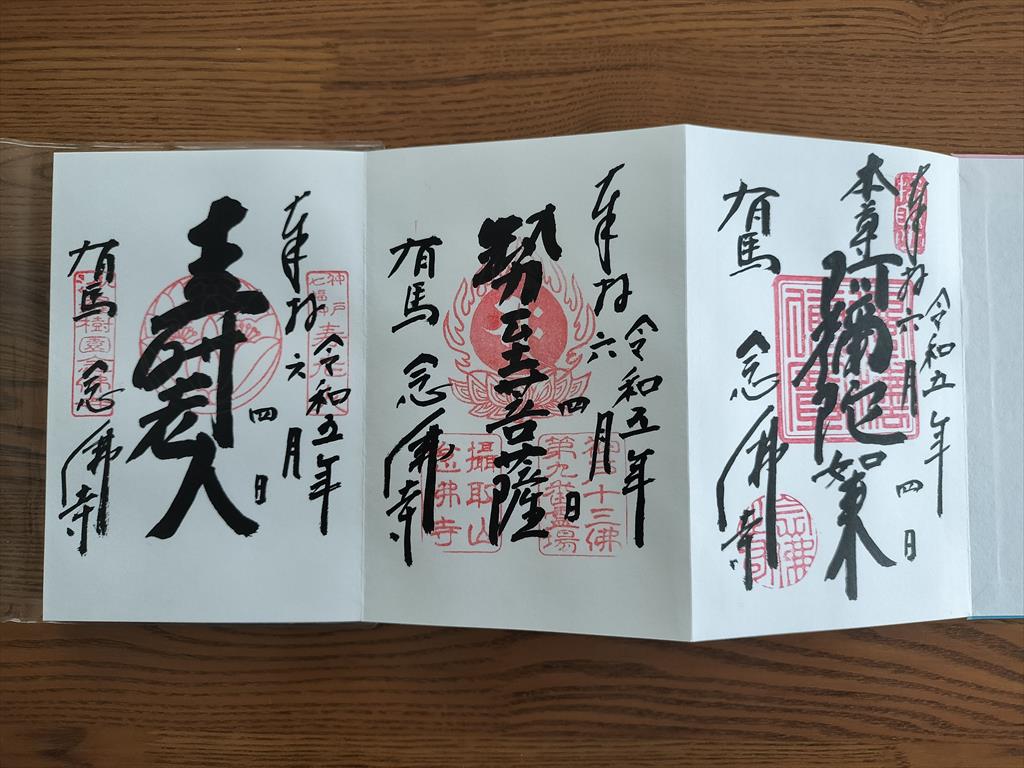 奉拝
令和五年
六月四日
本尊
阿彌陀如来
有馬
念佛寺
奉拝
令和五年
六月四日
勢至菩薩
神戸十三佛
第九番霊場
攝取山
念佛寺
有馬
念佛寺
奉拝
令和五年
六月四日
寿老人
有馬
念佛寺